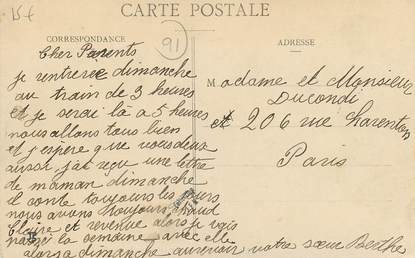 15f
CARTE POSTALE
91
CORRESPONDANCE
ADRESSE
Cher Parents
je rentreree dimanche
au train de 3 heures
et je serai la a 5 heures
nous allons tous bien
et j'espere que vous deux
aussi j'ai reçu une lettre
de maman dimanche
il tombe toujours les jours
nous avons toujours chaud
Claire et revenue alors je vais
passer la semaine avec elle
alors a dimanche aurevoir votre sœur Berthe
Madame et Monsieur
Ducondi
et 206 rue Charenton
Paris